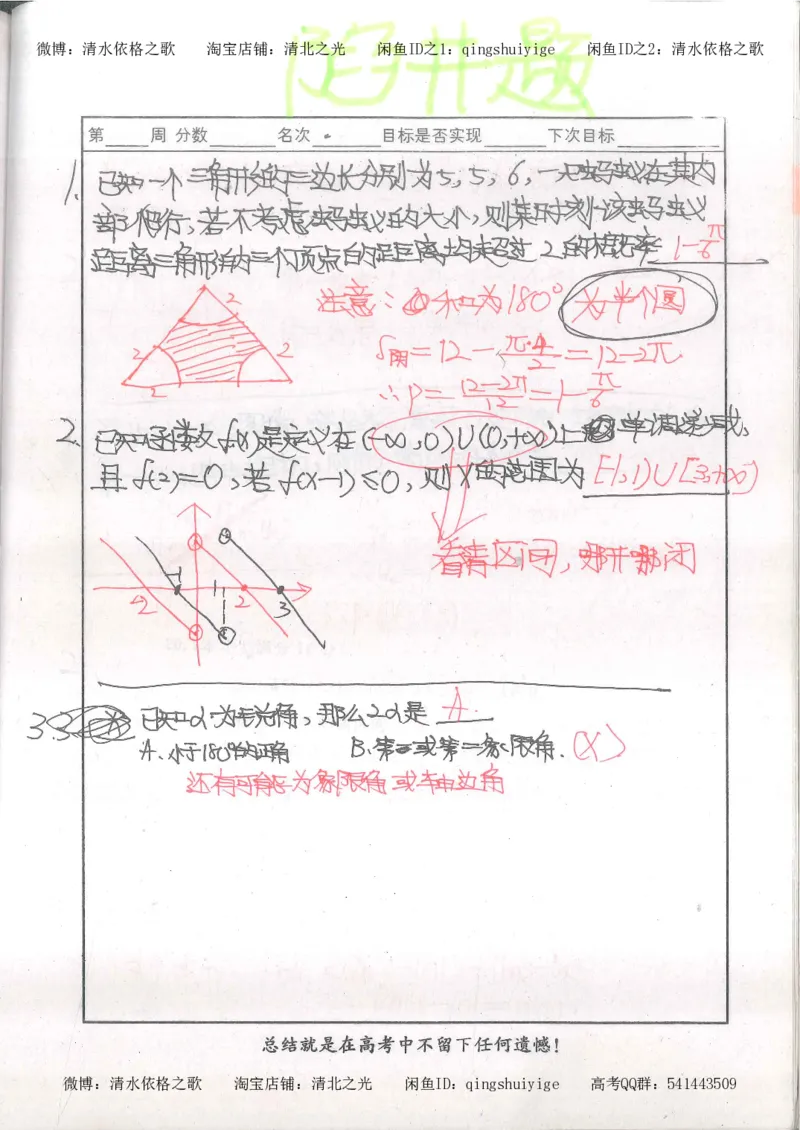 微博：清水依格之歌 淘宝店铺：清北之光 闲鱼ID之1：qingshuiyige 闲鱼ID之2：清水依格之歌
陷井题
第 周 分数 名次 目标是否实现 下次目标
1. 已知一个三角形的三边长分别为5，5，6，一只蚂蚁在其内
部爬行，若不考虑蚂蚁的大小，则某时刻该蚂蚁
距离三角形的三个顶点的距离均未超过2的概率 1-π/6
2
2
2
2
注意：和为180° 为半个圆
S阴=12-π·4/2=12-2π
∴P=12-2π/12=1-π/6
2. 已知函数f(x)是定义在(-∞,0)∪(0,+∞)上 单调递减，
且f(2)=0，若f(x-1)≤0，则x的范围为 [-1,1)∪[3,+∞)
看清区间，哪开哪闭
-2 -1 1 2 3
3. 已知α为锐角，那么2α是 A.
A、小于180°的正角 B、第一或第二象限角. (×)
还有可能为象限角或轴边角
总结就是在高考中不留下任何遗憾！
微博：清水依格之歌 淘宝店铺：清北之光 闲鱼ID：qingshuiyige 高考QQ群：541443509